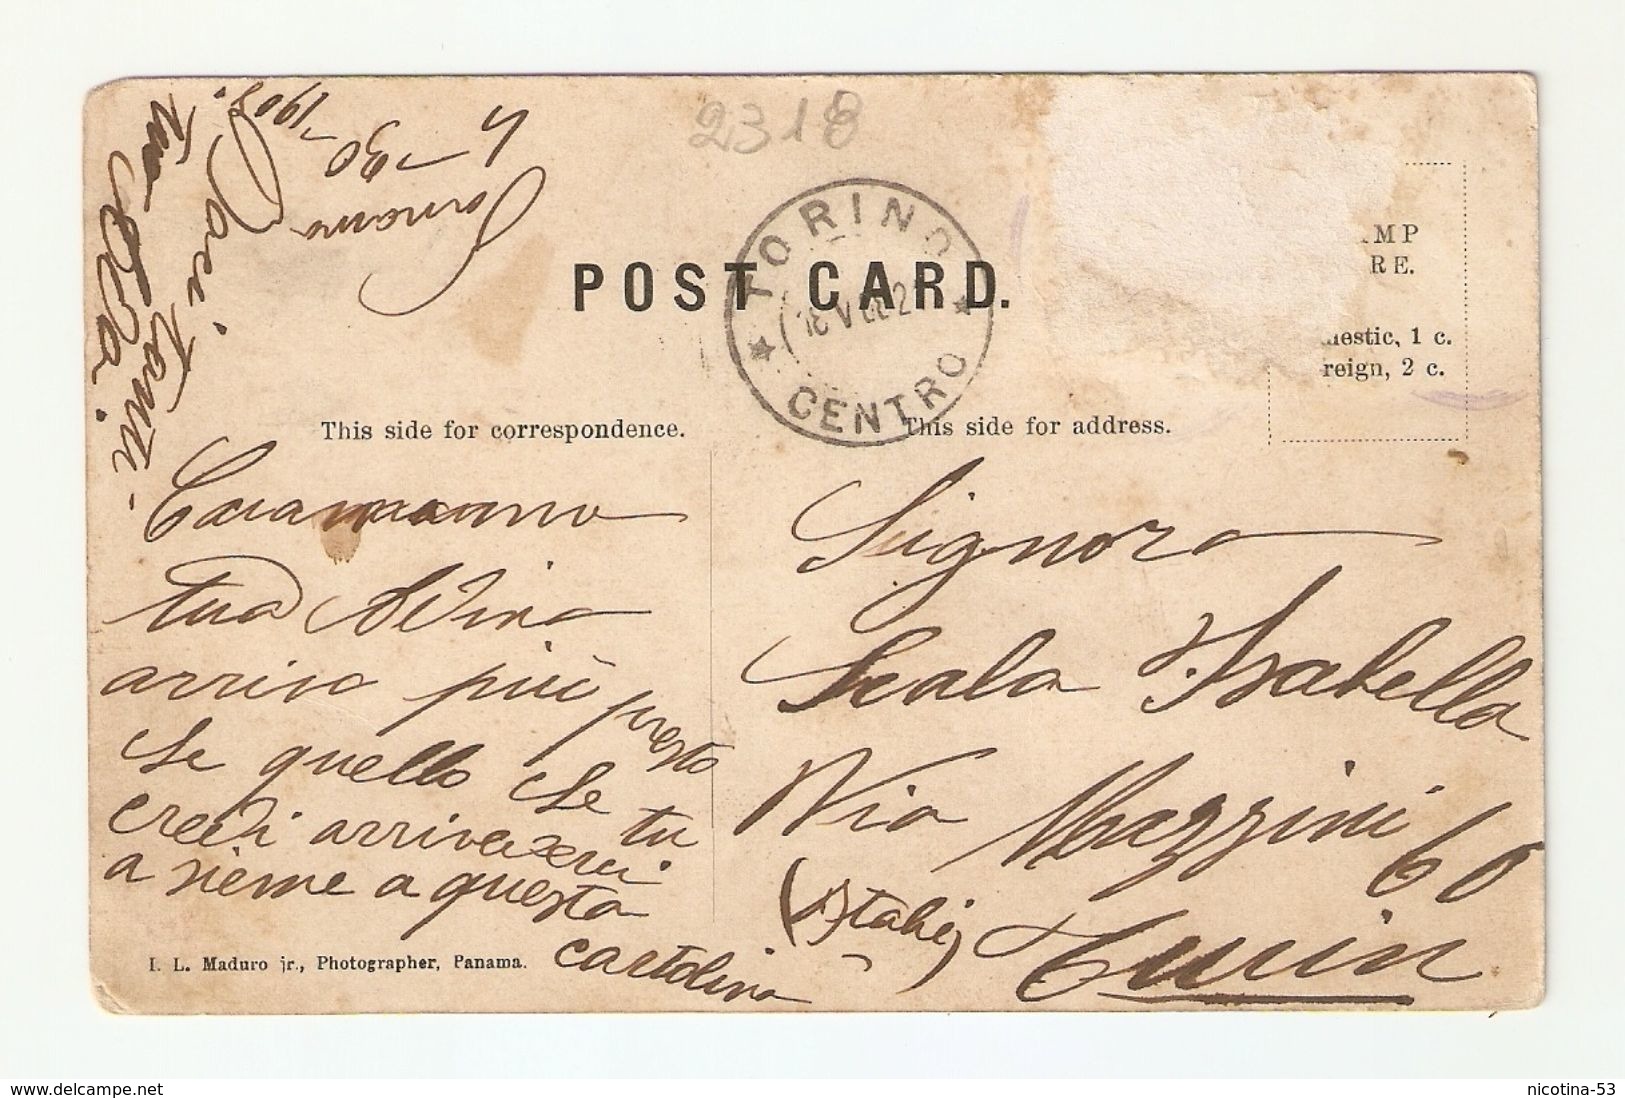 2318
Panama
4 - 30 - 190
Baci tanti.
tuo
TORINO
CENTRO
POST CARD.
MP
RE.
estic, 1 c.
reign, 2 c.
This side for correspondence.
This side for address.
Cara mamma
tua
arriva più presto
se quello che tu
credi
a sieme a questa
cartolina
Signora
Scala Isabella
Via Mazzini 60
(Italie)
Turin
I. L. Maduro jr., Photographer, Panama.
delcampe.net
nicotina-53